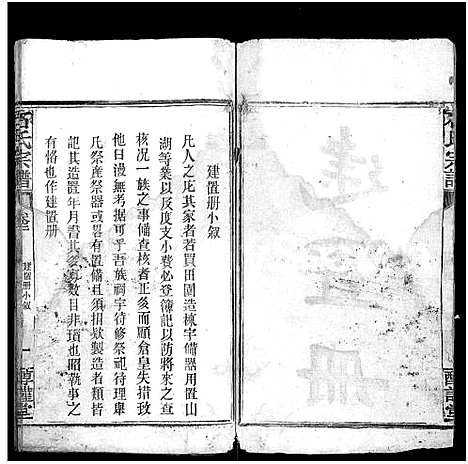 建置册
石氏宗譜
建置册小叙
凡人之庀其家者若買田園造棟宇備器用置山
湖等業以及度支小費必登簿記以防將來之查
核况一族之事備查核者正多而顧倉皇失措致
他日漫無考据可乎吾族祠宇待修祭祀待理卑
凡祭産祭器或舊置備且須招欵製造者類皆
記其造置年月書其多寡数目非瑣也昭執事之
有恪也作建置册
氏宗譜
卷三
建置册小叙
一